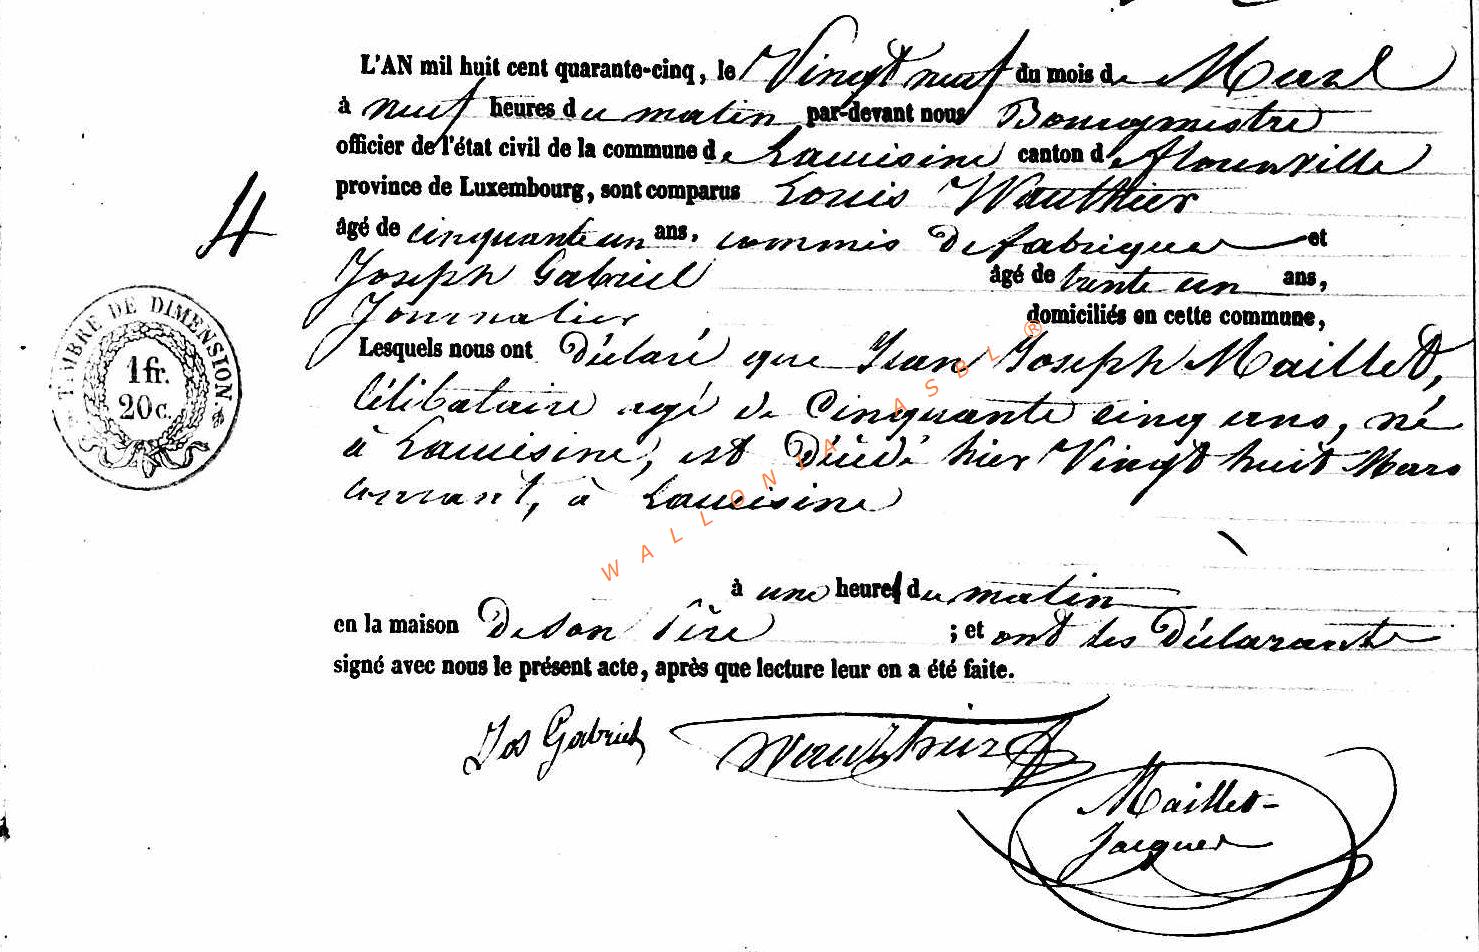 L'AN mil huit cent quarante-cinq, le Vingt neuf du mois de Mars
à neuf heures du matin par-devant nous Bourgmestre
officier de l'état civil de la commune de Lacuisine canton de florenville
province de Luxembourg, sont comparus Louis Wauthier
âgé de cinquante un ans, commis de fabrique et
Joseph Gabriel âgé de trente un ans,
Journalier domiciliés en cette commune,
Lesquels nous ont Déclaré que Jean Joseph Maillet,
Célibataire agé de Cinquante cinq ans, né
à Lacuisine, est Décédé hier Vingt huit Mars
courant, à Lacuisine
à une heure du matin
en la maison de son Père ; et ont les Déclarants
signé avec nous le présent acte, après que lecture leur en a été faite.
Jos Gabriel Wauthier
Maillet-
Jacques
4
TIMBRE DE DIMENSION.
1fr.
20c.
WALLONIA ASBL ®